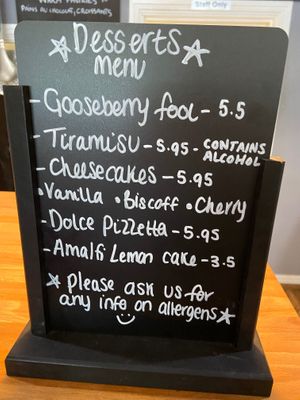 WARM PASTRIES
PAINS AU CHOCOLAT, CROISSANTS
Staff Only
Desserts
menu
- Gooseberry fool - 5.5
- Tiramisu - 5.95 - CONTAINS ALCOHOL
- Cheesecakes - 5.95
• Vanilla • Biscoff • Cherry
- Dolce Pizzetta - 5.95
- Amalfi Lemon cake - 3.5
Please ask us for
any info on allergens